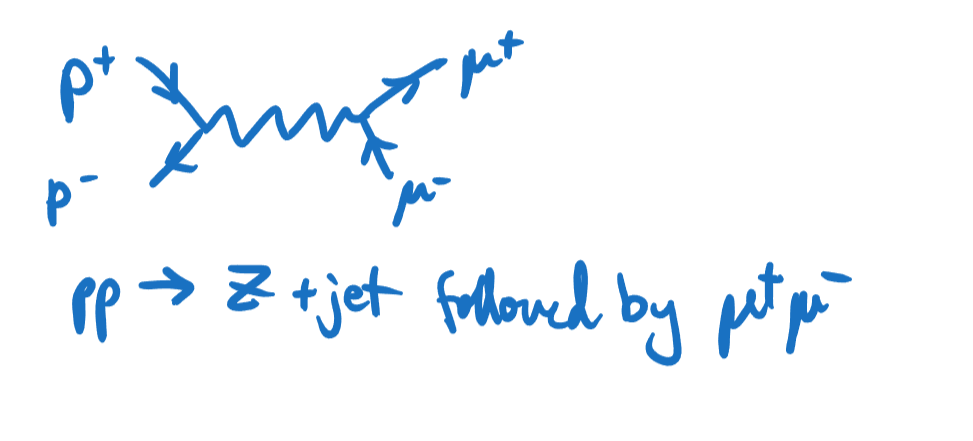 p+ μ+
p- μ-
pp → Z + jet followed by μ+μ-